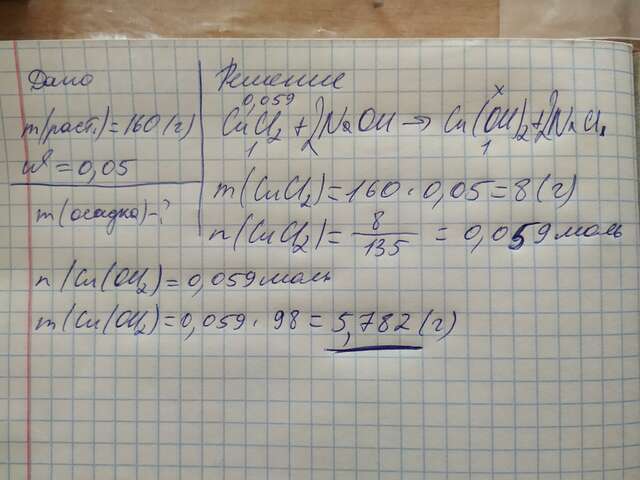 Дано
m(раст.)=160(г)
w=0,05
m(осадка)-?
Решение
0,059 x
CuCl2+2NaOH→Cu(OH)2+2NaCl
1 1
m(CuCl2)=160·0,05=8(г)
n(CuCl2)=8/135=0,059моль
n(Cu(OH2)=0,059моль
m(Cu(OH2)=0,059·98=5,782(г)